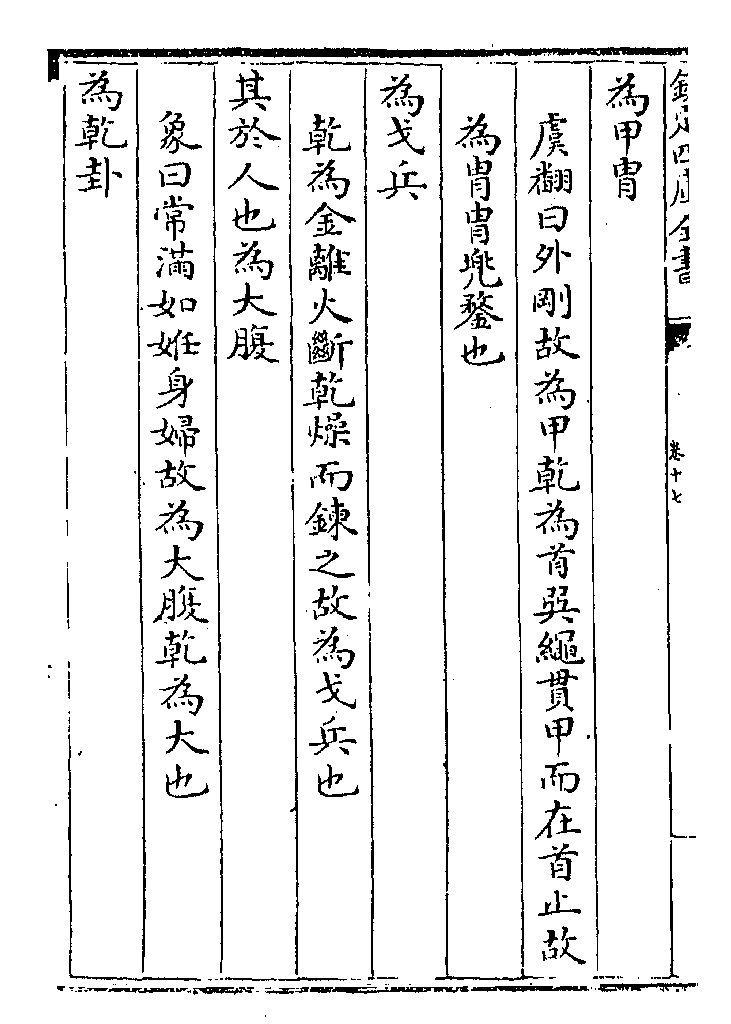 欽定四庫全書
卷十七
為甲冑
虞翻曰外剛故為甲乾為首巽繩貫甲而在首止故
為冑冑兠鍪也
為戈兵
乾為金離火斷乾燥而鍊之故為戈兵也
其於人也為大腹
象曰常滿如姙身婦故為大腹乾為大也
為乾卦